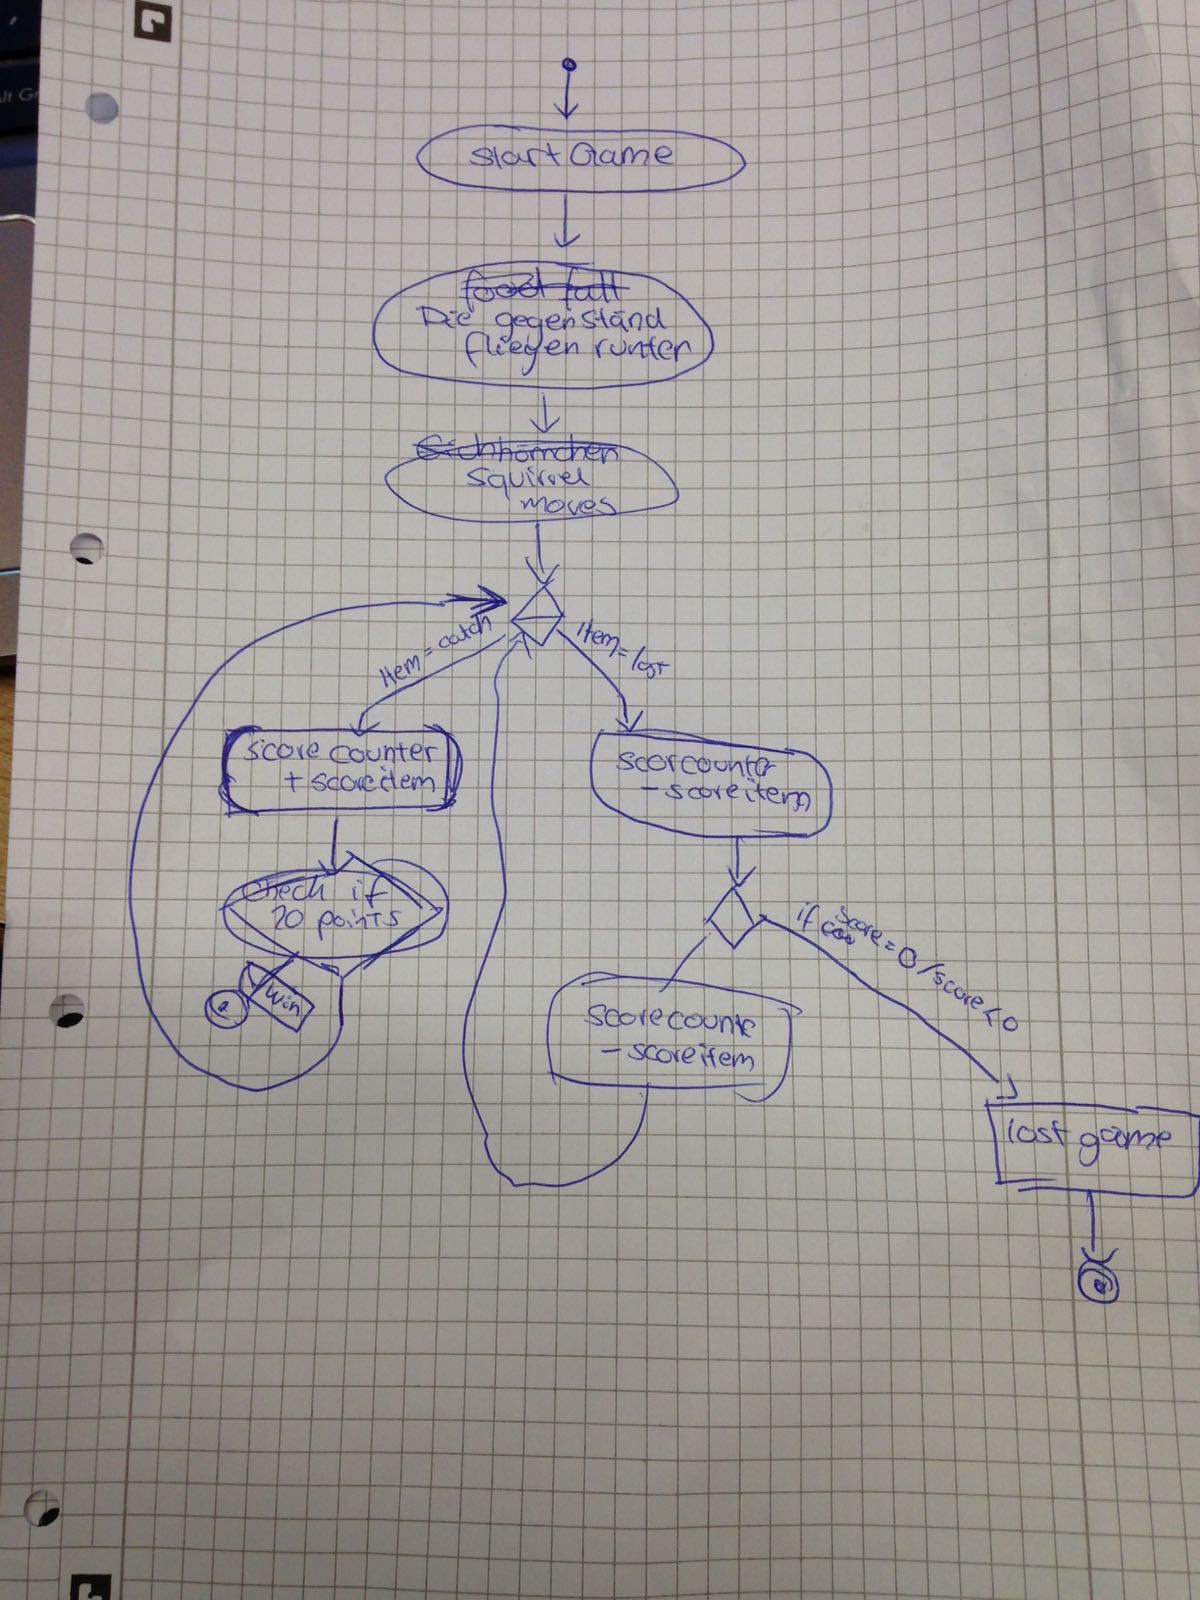 Alt Gr
start Game
food fall
Die gegenständ
fliegen runter
Eichhörnchen
squirrel
moves
Item = catch
Item = lost
score counter
+ scoreitem
scorcounter
- scoreitem
Check if
20 points
Win
if
score = 0 / score < 0
scorecounte
- scoreitem
lost game